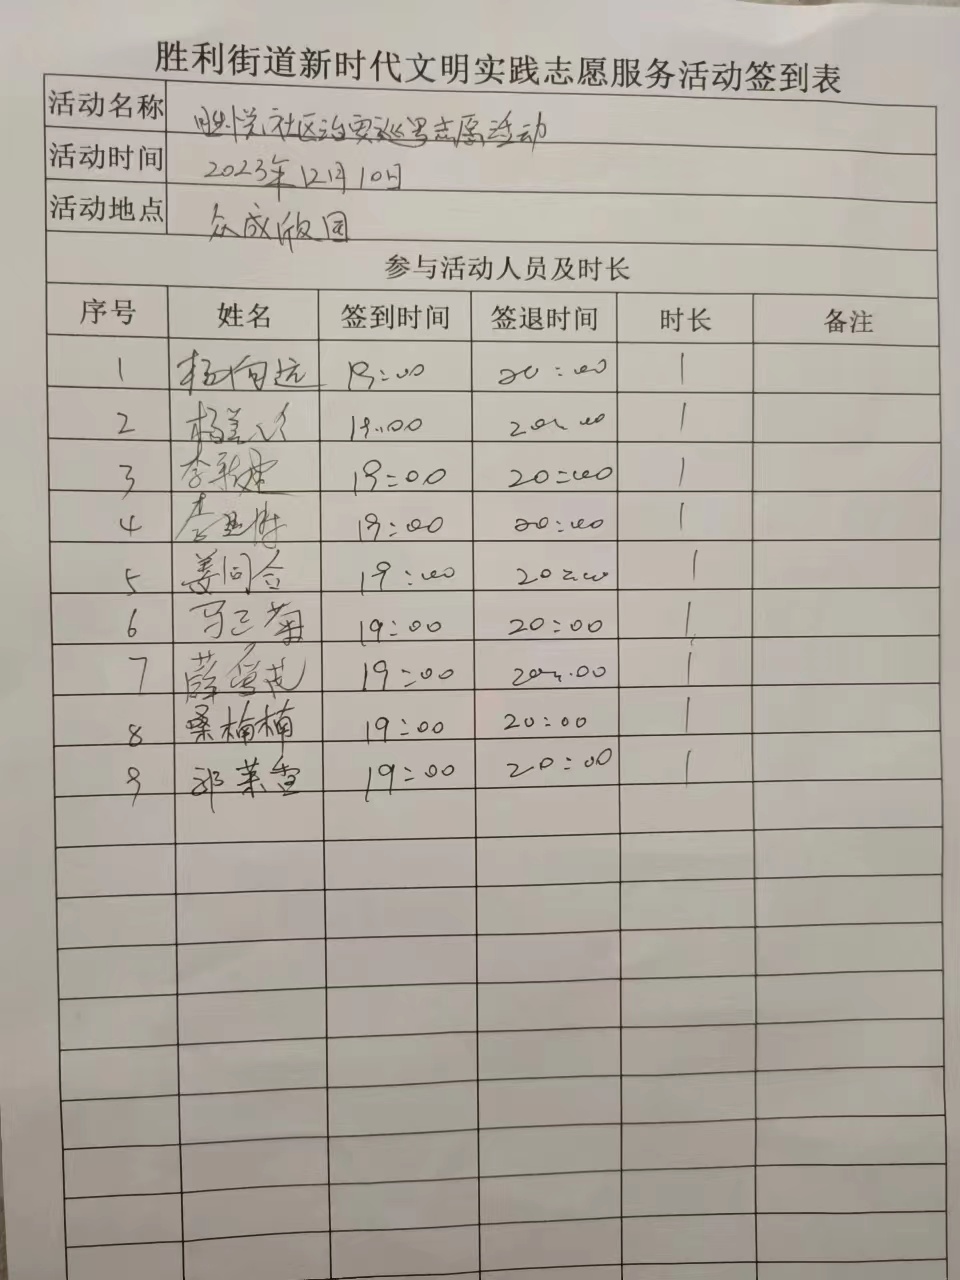 胜利街道新时代文明实践志愿服务活动签到表
活动名称 胜悦社区治安巡逻志愿活动
活动时间 2023年12月10日
活动地点 众成欣园
参与活动人员及时长
序号 姓名 签到时间 签退时间 时长 备注
1 杨向远 19:00 20:00 1
2 杨美 19:00 20:00 1
3 李 19:00 20:00 1
4 李 19:00 20:00 1
5 姜问合 19:00 20:00 1
6 马三菊 19:00 20:00 1
7 薛 19:00 20:00 1
8 桑楠楠 19:00 20:00 1
9 邓莱雪 19:00 20:00 1